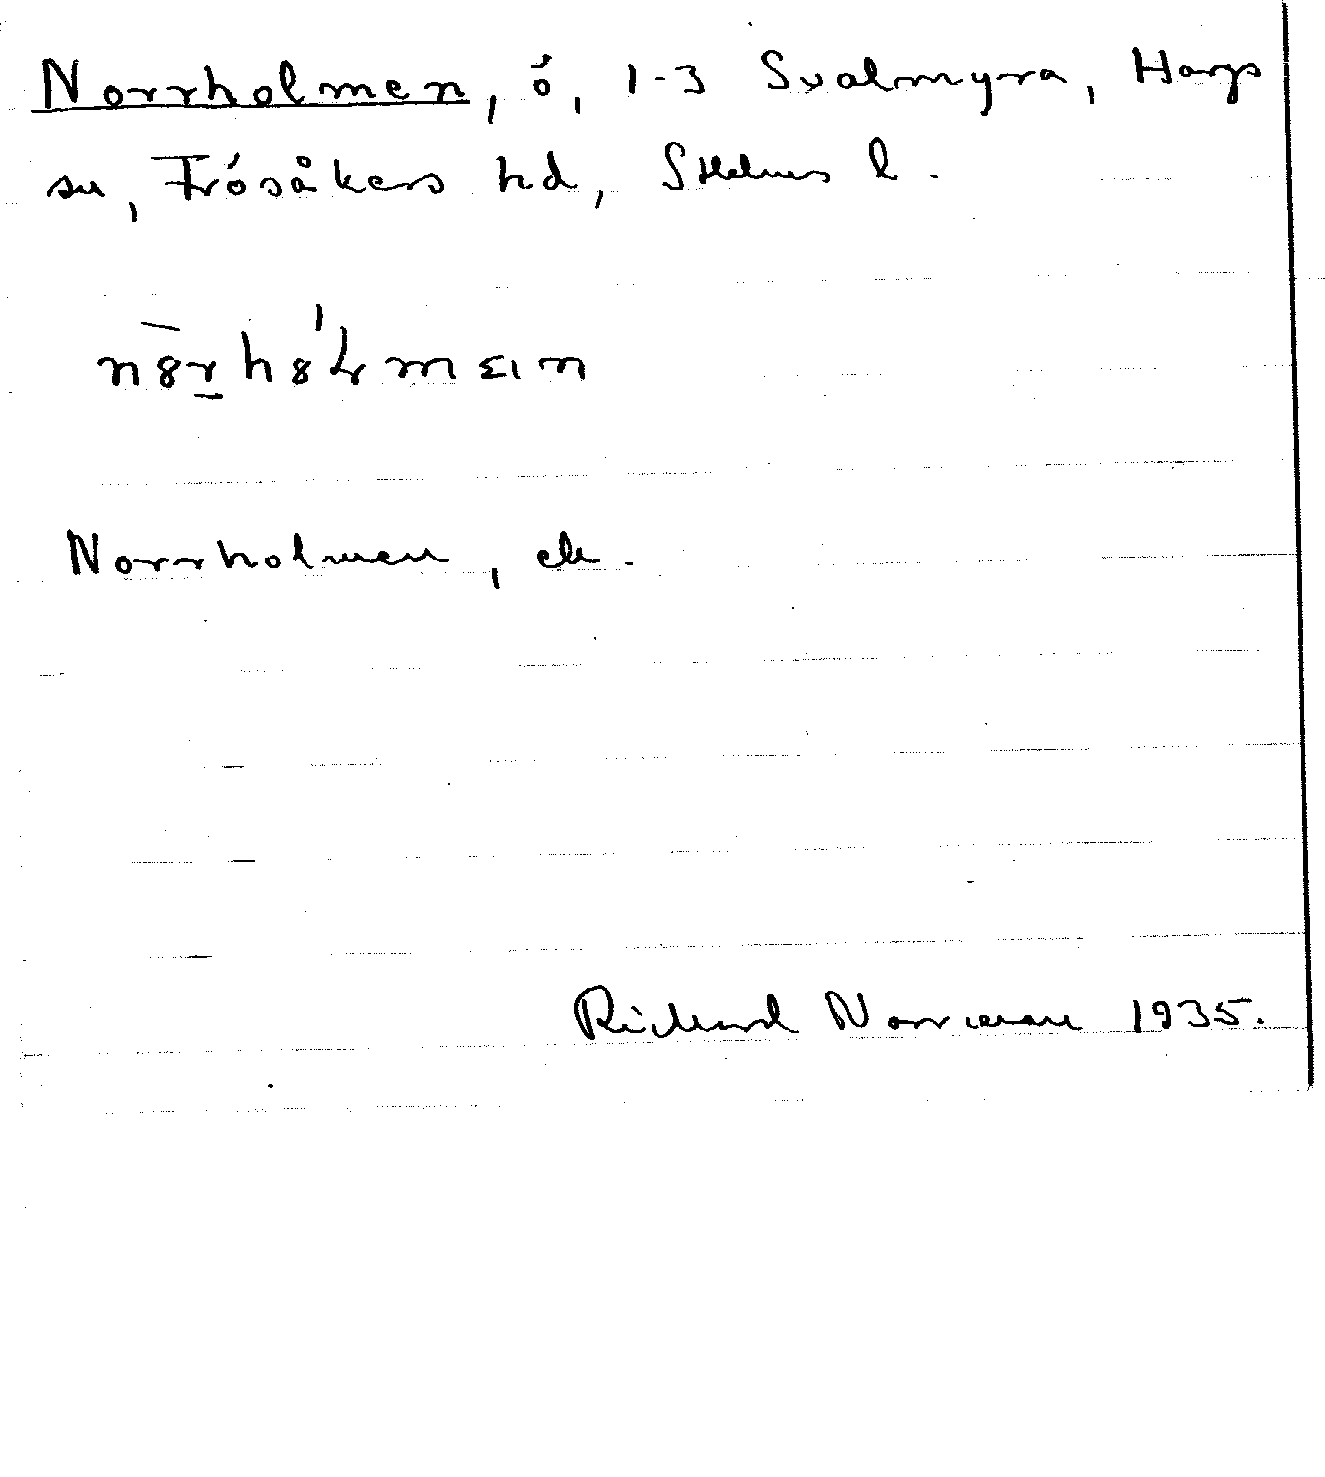 Norrholmen, ö, 1-3 Svalmyra, Hargs
sn, Frösåkers hd, Sthlms l.
Norrholmen, ek.
Richard Norrman 1935.